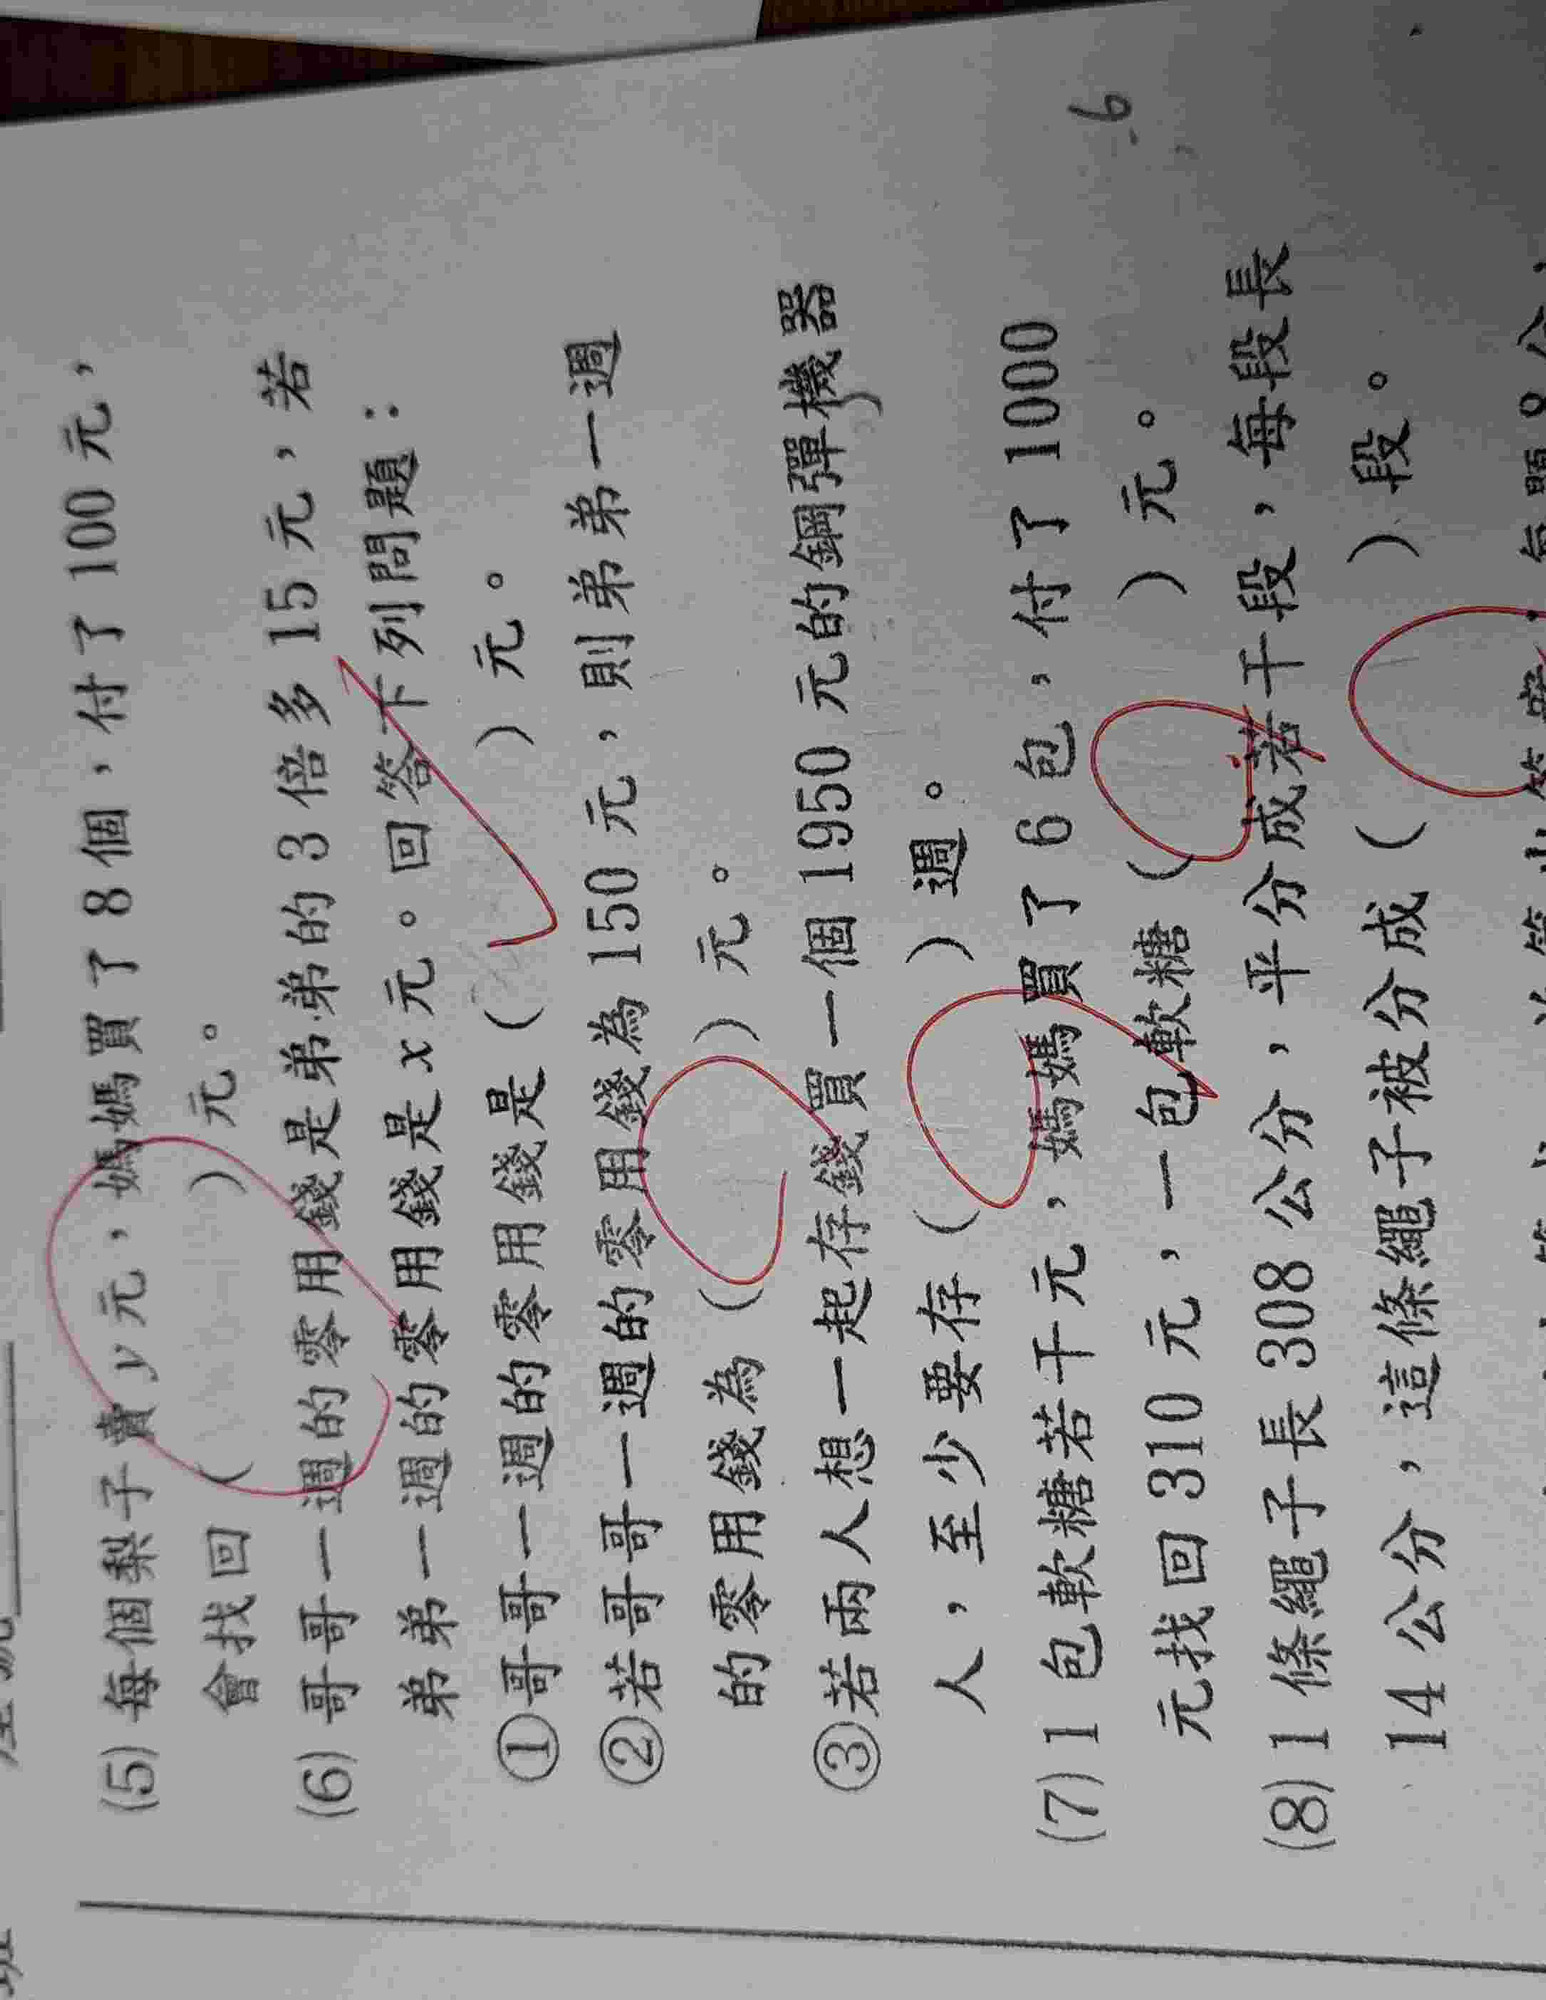 (5) 每個梨子賣 y 元，媽媽買了 8 個，付了 100 元，
會找回（　　）元。
(6) 哥哥一週的零用錢是弟弟的 3 倍多 15 元，若
弟弟一週的零用錢是 x 元。回答下列問題：
①哥哥一週的零用錢是（　　）元。
②若哥哥一週的零用錢為 150 元，則弟弟一週
的零用錢為（　　）元。
③若兩人想一起存錢買一個 1950 元的鋼彈機器
人，至少要存（　　）週。
(7) 1 包軟糖若干元，媽媽買了 6 包，付了 1000
元找回 310 元，一包軟糖（　　）元。
(8) 1 條繩子長 308 公分，平分成若干段，每段長
14 公分，這條繩子被分成（　　）段。
-6